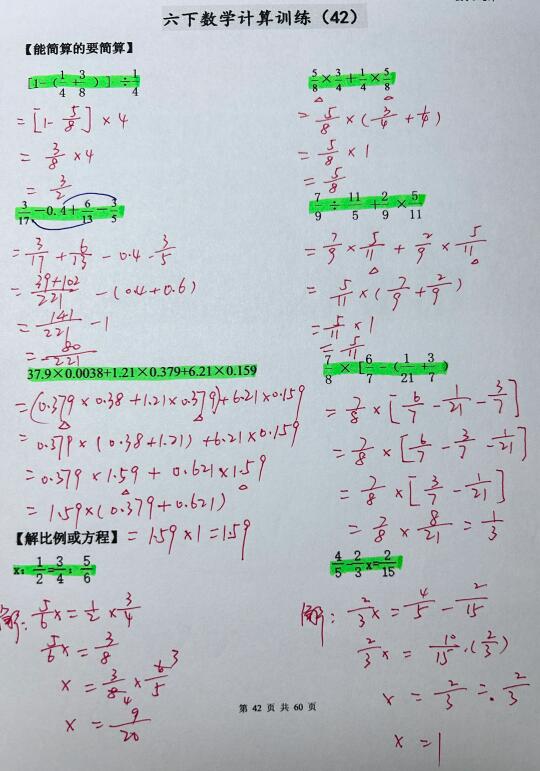 六下数学计算训练（42）
【能简算的要简算】
[1-（1/4+3/8）] ÷1/4
= [1- 5/8] × 4
= 3/8 × 4
= 3/2
5/8×3/4+1/4×5/8
= 5/8 × (3/4 + 1/4)
= 5/8 × 1
= 5/8
3/17-0.4+6/13-3/5
= 3/17 + 6/13 - 0.4 - 3/5
= 39+102/221 - (0.4+0.6)
= 141/221 - 1
= 80/221
7/9÷11/5+2/9×5/11
= 7/9 × 5/11 + 2/9 × 5/11
= 5/11 × (7/9 + 2/9)
= 5/11 × 1
= 5/11
37.9×0.0038+1.21×0.379+6.21×0.159
= (0.379 × 0.38 + 1.21 × 0.379) + 6.21 × 0.159
= 0.379 × (0.38 + 1.21) + 6.21 × 0.159
= 0.379 × 1.59 + 0.621 × 1.59
= 1.59 × (0.379 + 0.621)
= 1.59 × 1 = 1.59
7/8×[6/7-（1/21+3/7）
= 7/8 × [6/7 - 1/21 - 3/7]
= 7/8 × [6/7 - 3/7 - 1/21]
= 7/8 × [3/7 - 1/21]
= 7/8 × 8/21 = 1/3
【解比例或方程】
x：1/2=3/4：5/6
解: 5/6 x = 1/2 × 3/4
5/6 x = 3/8
x = 3/8 4 × 6 3/5
x = 9/20
4/5-2/3x=2/15
解: 2/3 x = 4/5 - 2/15
2/3 x = 10/15 (2/3)
x = 2/3 ÷ 2/3
x = 1
第 42 页 共 60 页